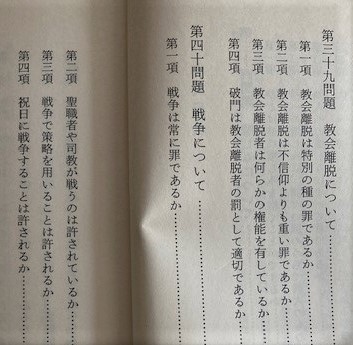 第三十九問題　教会離脱について……………
第一項　教会離脱は特別の種の罪であるか……………
第二項　教会離脱は不信仰よりも重い罪であるか……………
第三項　教会離脱者は何らかの権能を有しているか……………
第四項　破門は教会離脱者の罰として適切であるか……………
第四十問題　戦争について……………
第一項　戦争は常に罪であるか……………
第二項　聖職者や司教が戦うのは許されているか……………
第三項　戦争で策略を用いることは許されるか……………
第四項　祝日に戦争することは許されるか……………